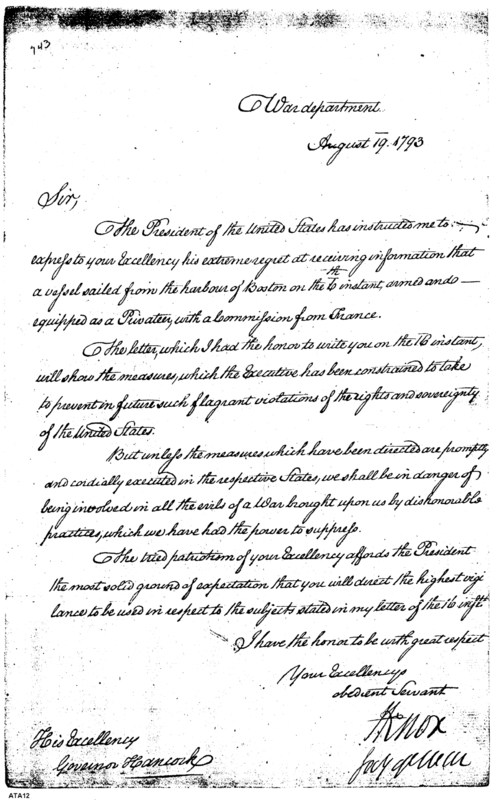 743
War department
August 19. 1793
Sir,
The President of the United States has instructed me to
express to your Excellency his extreme regret at receiving information that
a vessel sailed from the harbour of Boston on the 6th instant, armed and
equipped as a Privateer, with a Commission from France.
The letter, which I had the honor to write you on the 16 instant,
will show the measures, which the Executive has been constrained to take
to prevent in future such flagrant violations of the rights and sovereignty
of the United States.
But unless the measures which have been directed are promptly
and cordially executed in the respective States, we shall be in danger of
being involved in all the evils of a War brought upon us by dishonorable
practices, which we have had the power to suppress.
The tried patriotism of your Excellency affords the President
the most solid ground of expectation that you will direct the highest vigi
lance to be used in respect to the subjects stated in my letter of the 16 inst.
I have the honor to be with great respect
Your Excellencys
obedient Servant
HKnox
Secy of War
His Excellency
Governor Hancock
ATA12